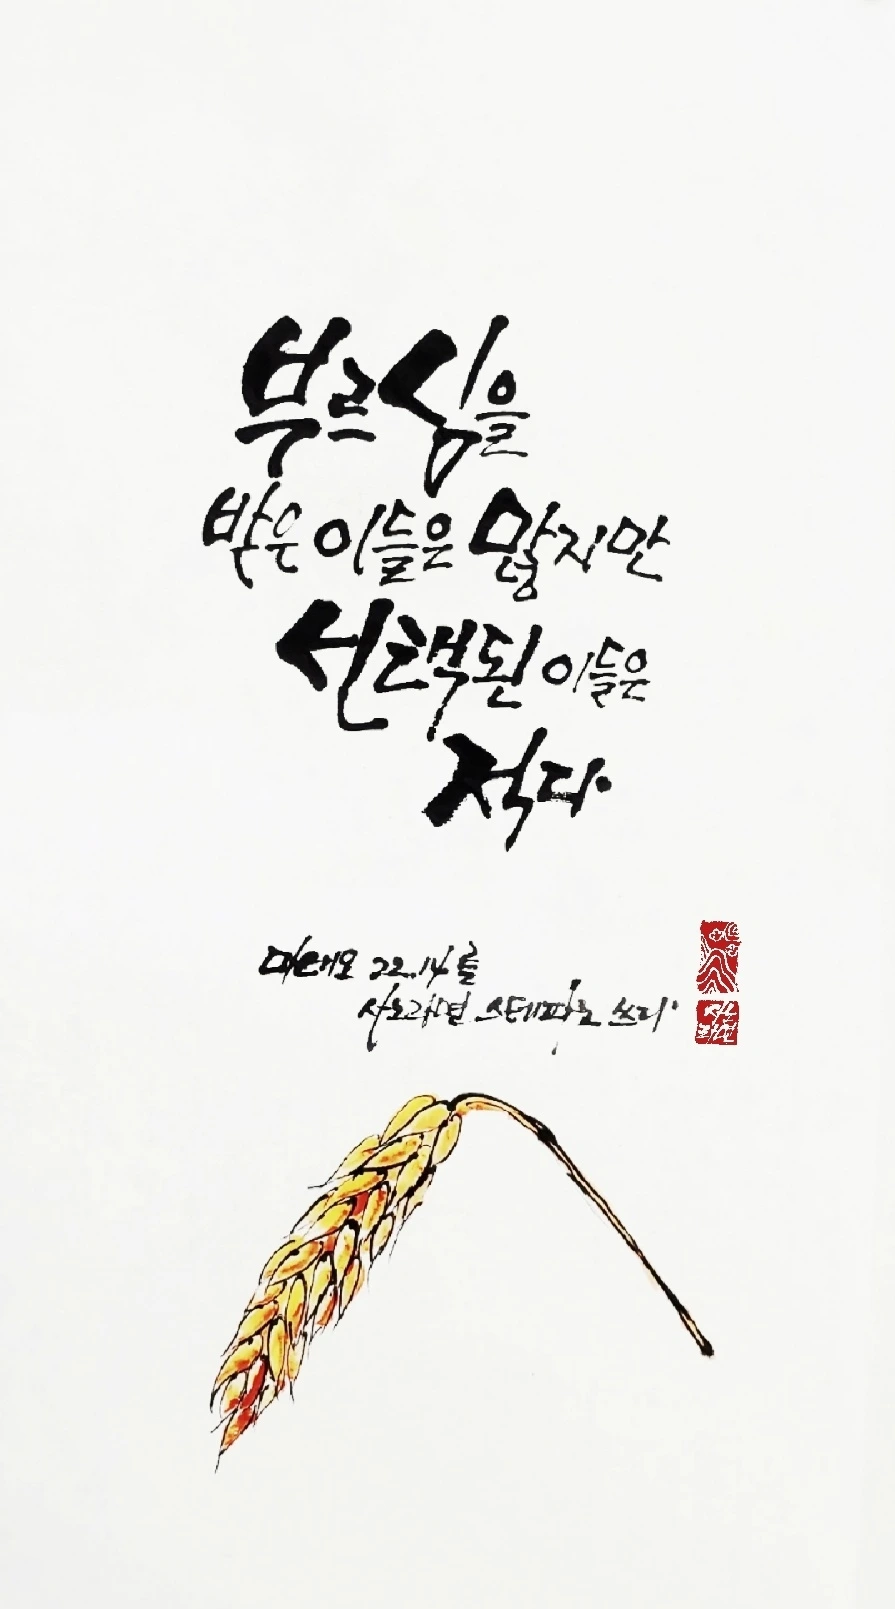 부르심을
받은 이들은 많지만
선택된 이들은
적다.
마태오 22.14를
사노라면 스테파노 쓰다.
사노
라면